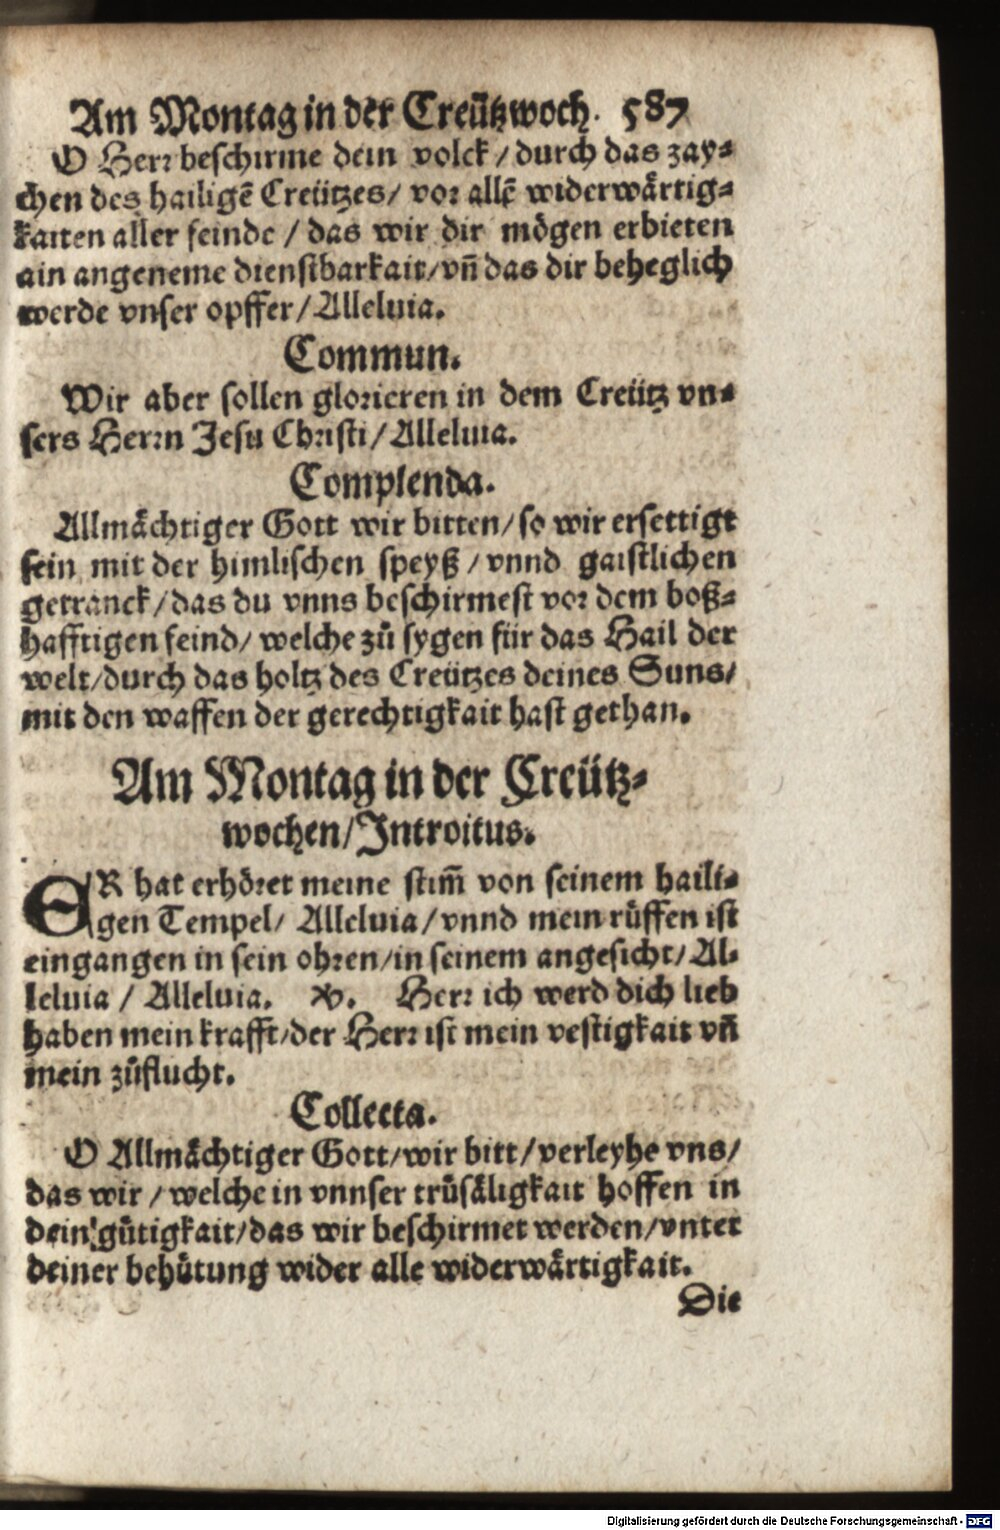 Am Montag in der Creützwoch. 587
O Herr beschirme dein volck / durch das zay-
chen des hailigē Creützes / vor allē widerwärtig-
kaiten aller feinde / das wir dir mögen erbieten
ain angeneme dienstbarkait / vñ das dir beheglich
werde vnser opffer / Alleluia.
Commun.
Wir aber sollen glorieren in dem Creütz vn-
sers Herrn Jesu Christi / Alleluia.
Complenda.
Allmächtiger Gott wir bitten / so wir ersettigt
sein mit der himlischen speyß / vnnd gaistlichen
getranck / das du vnns beschirmest vor dem boß-
hafftigen feind / welche zů sygen für das Hail der
welt / durch das holtz des Creützes deines Suns /
mit den waffen der gerechtigkait hast gethan.
Am Montag in der Creütz-
wochen / Introitus.
ER hat erhöret meine stim̄ von seinem haili-
gen Tempel / Alleluia / vnnd mein rüffen ist
eingangen in sein ohren / in seinem angesicht / Al-
leluia / Alleluia. ℣. Herr ich werd dich lieb
haben mein krafft / der Herr ist mein vestigkait vñ
mein zůflucht.
Collecta.
O Allmächtiger Gott / wir bitt / verleyhe vns /
das wir / welche in vnnser trüsäligkait hoffen in
dein gütigkait / das wir beschirmet werden / vnter
deiner behütung wider alle widerwärtigkait.
Die
Digitalisierung gefördert durch die Deutsche Forschungsgemeinschaft - DFG